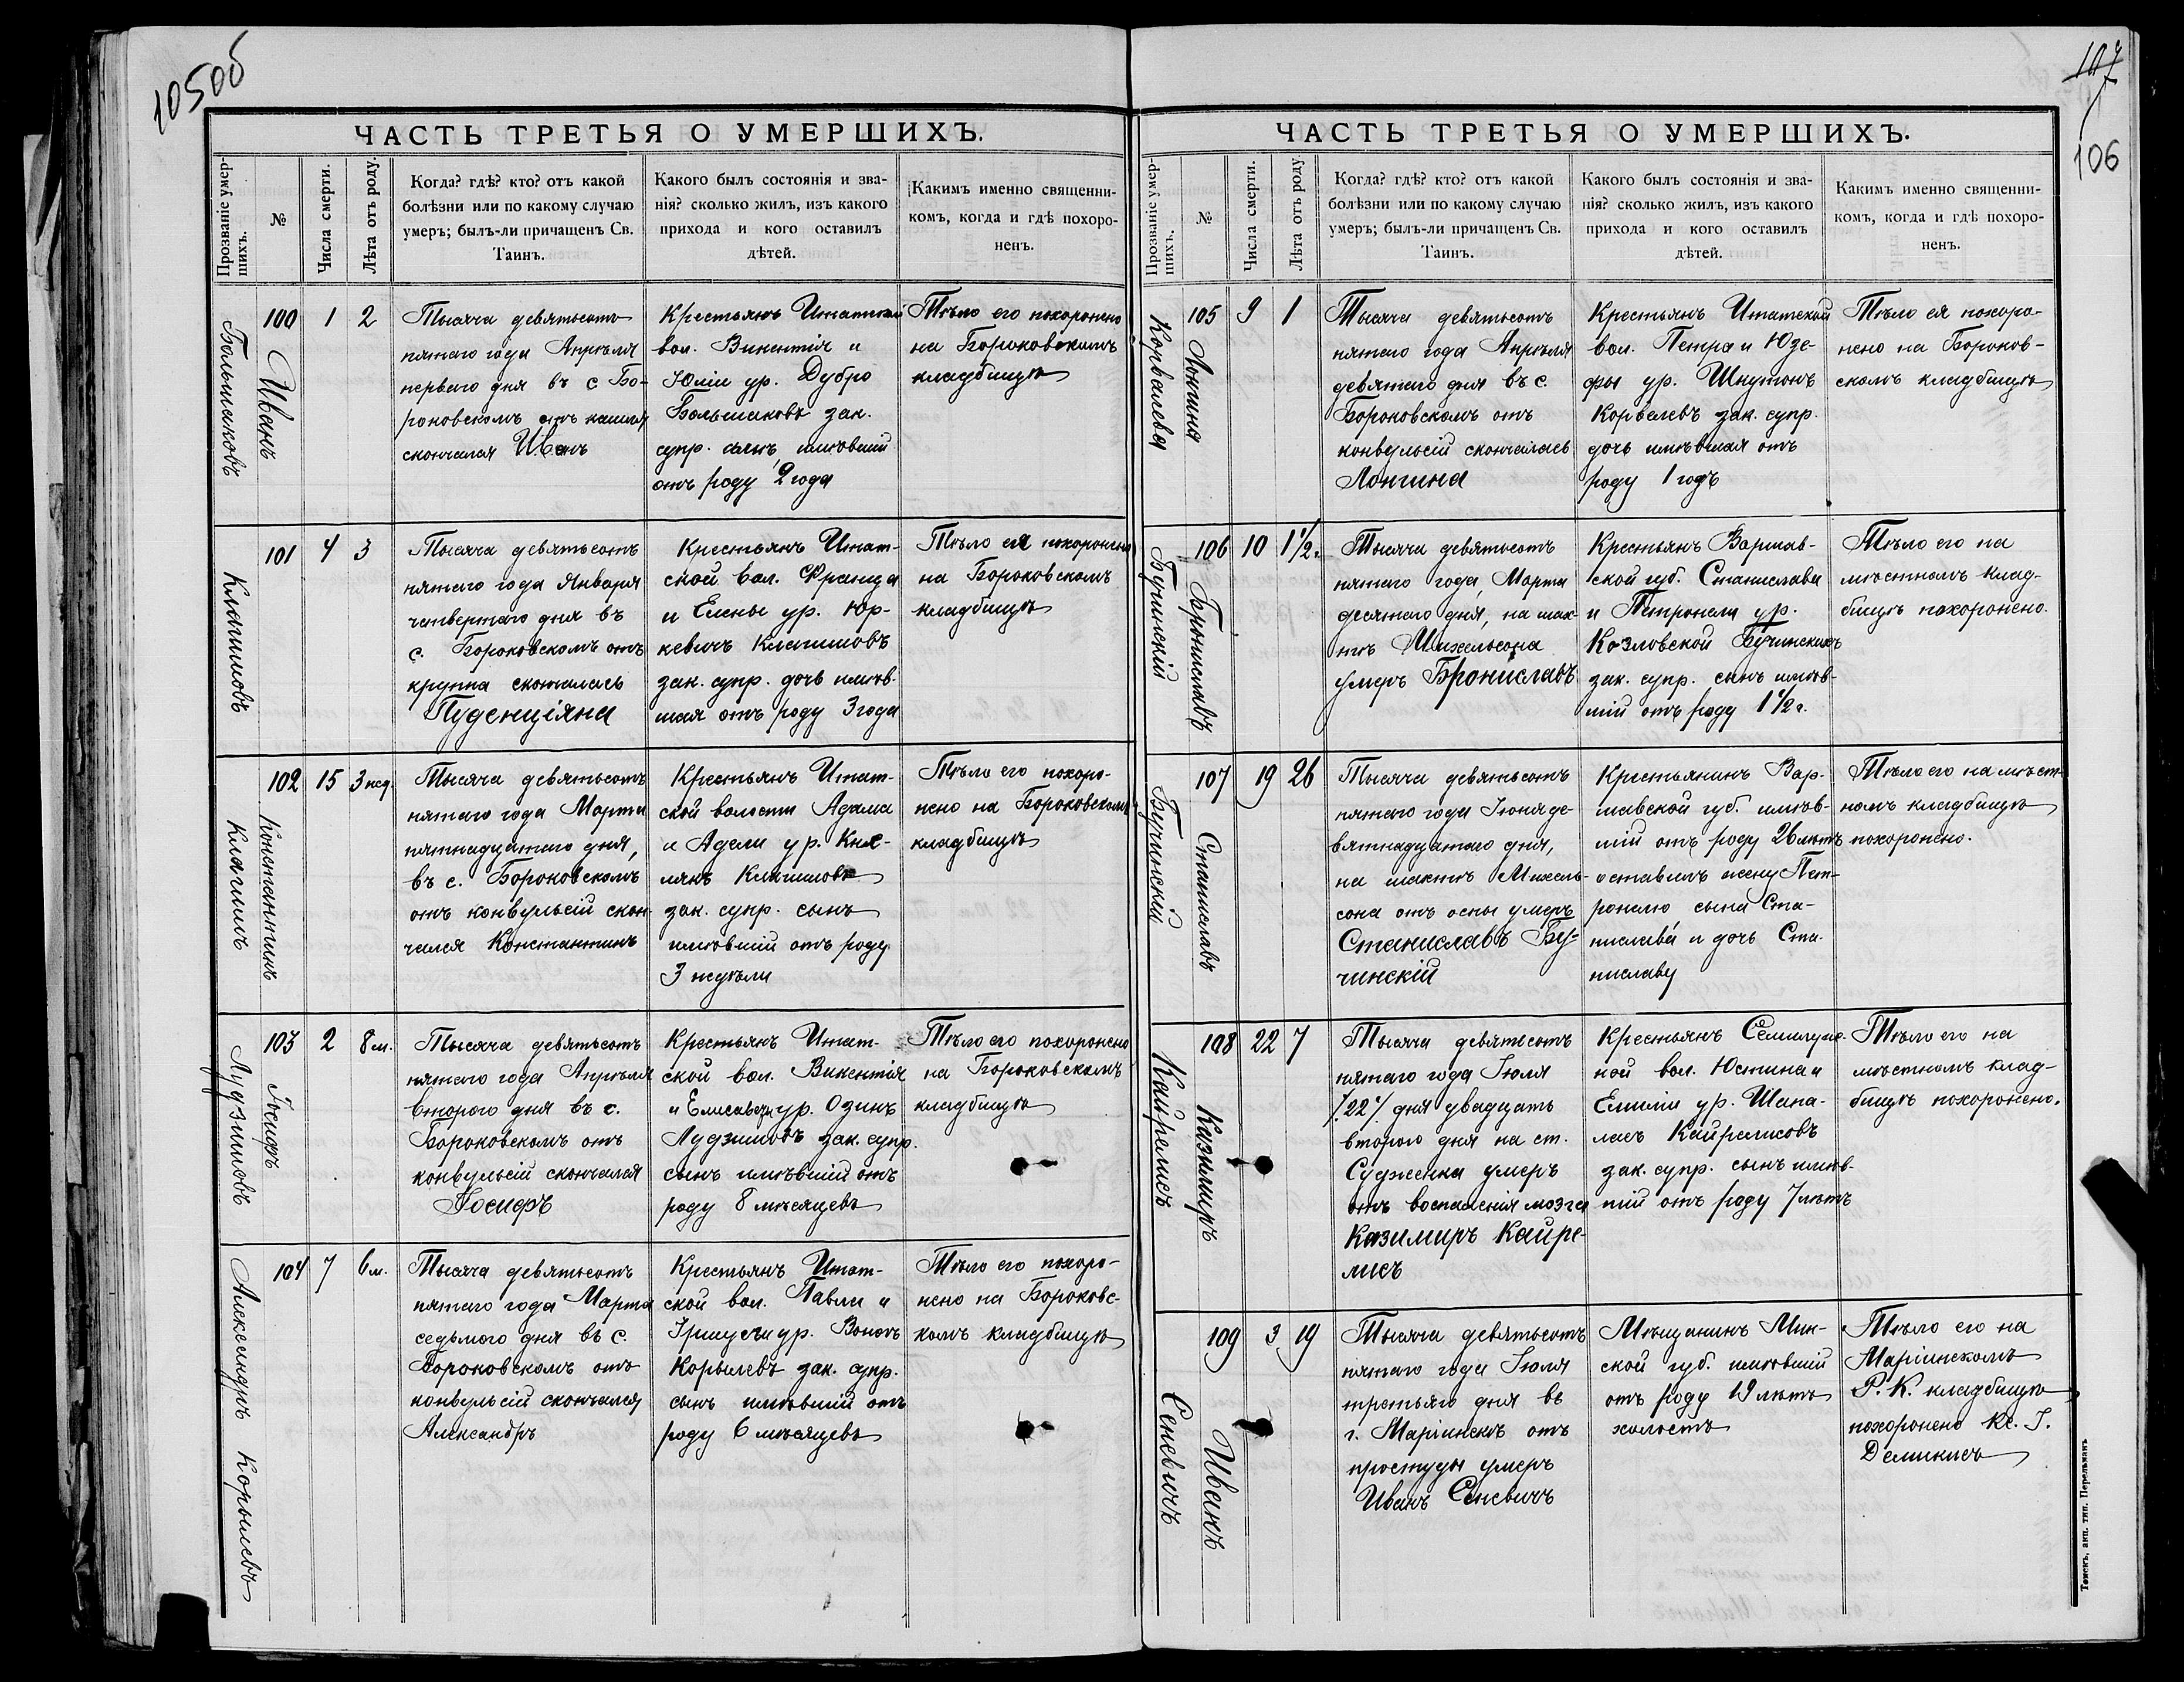 105об
ЧАСТЬ ТРЕТЬЯ О УМЕРШИХЪ.
Прозваніе умер-
шихъ.
№
Числа смерти.
Лѣта отъ роду.
Когда? гдѣ? кто? отъ какой
болѣзни или по какому случаю
умеръ; былъ-ли причащенъ Св.
Таинъ.
Какого былъ состоянія и зва-
нія? сколько жилъ, изъ какого
прихода и кого оставилъ
дѣтей.
Какимъ именно священни-
комъ, когда и гдѣ похоро-
ненъ.
Болшаковъ
Иванъ
100
1
2
Тысяча девятьсотъ
пятаго года Апрѣля
перваго дня въ с. Бо-
роковскомъ отъ кашля
скончался Иванъ
Крестьянъ Итатской
вол. Викентія и
Юліи ур. Дубро
Большаковъ зак.
супр. сынъ, имѣвшій
отъ роду 2 года
Тѣло его похоронено
на Бороковскомъ
кладбищѣ
Клагишовъ
101
4
3
Тысяча девятьсотъ
пятаго года Января
четвертаго дня въ
с. Бороковскомъ отъ
круппа скончалась
Пуденціяна
Крестьянъ Итат-
ской вол. Франца
и Елены ур. Юр-
кевичъ Клагишовъ
зак. супр. дочь имѣв-
шая отъ роду 3 года
Тѣло ея похоронено
на Бороковскомъ
кладбищѣ
Клагишъ
Константинъ
102
15
3 нед.
Тысяча девятьсотъ
пятаго года Марта
пятнадцатаго дня,
въ с. Бороковскомъ
отъ конвульсій скон-
чался Константинъ
Крестьянъ Итат-
ской волости Адама
и Адели ур. Кия-
лянъ Клагишовъ
зак. супр. сынъ
имѣвшій отъ роду
3 недѣли
Тѣло его похоро-
нено на Бороковскомъ
кладбищѣ
Лудзишовъ
Іосифъ
103
2
8 м.
Тысяча девятьсотъ
пятаго года Апрѣля
второго дня въ с.
Бороковскомъ отъ
конвульсій скончался
Іосифъ
Крестьянъ Итат-
ской вол. Викентія
и Елисаветы ур. Озинъ
Лудзишовъ зак. супр.
сынъ имѣвшій отъ
роду 8 мѣсяцевъ
Тѣло его похоронено
на Бороковскомъ
кладбищѣ
Александръ Корылевъ
104
7
6 м.
Тысяча девятьсотъ
пятаго года Марта
седьмого дня въ с.
Бороковскомъ отъ
конвульсій скончался
Александръ
Крестьянъ Итат-
ской вол. Павла и
ур.
Корылевъ зак. супр.
сынъ имѣвшій отъ
роду 6 мѣсяцевъ
Тѣло его похоро-
нено на Бороковс-
комъ кладбищѣ
107
106
ЧАСТЬ ТРЕТЬЯ О УМЕРШИХЪ.
Прозваніе умер-
шихъ.
№
Числа смерти.
Лѣта отъ роду.
Когда? гдѣ? кто? отъ какой
болѣзни или по какому случаю
умеръ; былъ-ли причащенъ Св.
Таинъ.
Какого былъ состоянія и зва-
нія? сколько жилъ, изъ какого
прихода и кого оставилъ
дѣтей.
Какимъ именно священни-
комъ, когда и гдѣ похоро-
ненъ.
Корвалева
Лонгина
105
9
1
Тысяча девятьсотъ
пятаго года Апрѣля
девятаго дня въ с.
Бороковскомъ отъ
конвульсій скончалась
Лонгина
Крестьянъ Итатской
вол. Петра и Юзе-
фы ур. Шнутонъ
Корвалевъ зак. супр.
дочь имѣвшая отъ
роду 1 годъ
Тѣло ея похоро-
нено на Бороков-
скомъ кладбищѣ
Бучинскій
Брониславъ
106
10
1 1/2 г.
Тысяча девятьсотъ
пятаго года, Марта
десятаго дня, на шах-
тѣ Михельсона
умеръ Брониславъ
Крестьянъ Варшав-
ской губ. Станислава
и Петронели ур.
Козловской Бучинскихъ
зак. супр. сынъ имѣв-
шій отъ роду 1 1/2 г.
Тѣло его на
мѣстномъ клад-
бищѣ похоронено.
Бучинскій
Станиславъ
107
19
26
Тысяча девятьсотъ
пятаго года Іюня де-
вятнадцатаго дня,
на шахтѣ Михель-
сона отъ оспы умеръ
Станиславъ Бу-
чинскій
Крестьянинъ Вар-
шавской губ. имѣв-
шій отъ роду 26 лѣтъ
оставилъ жену Пет-
ронелю сына Ста-
нислава и дочь Ста-
ниславу
Тѣло его на мѣст-
номъ кладбищѣ
похоронено.
Кайрелисъ
Казимиръ
108
22
7
Тысяча девятьсотъ
пятаго года Іюля
/22/ дня двадцать
второго дня на ст.
Судженка умеръ
отъ воспаленія мозга
Казимиръ Кайре-
лисъ
Крестьянъ Семилуж-
ной вол. Юстина и
Емиліи ур. Шапа-
ласъ Кайрелисовъ
зак. супр. сынъ имѣв-
шій отъ роду 7 лѣтъ
Тѣло его на
мѣстномъ клад-
бищѣ похоронено.
Сеневичъ
Иванъ
109
3
19
Тысяча девятьсотъ
пятаго года Іюля
третьяго дня въ
г. Маріинскѣ отъ
простуды умеръ
Иванъ Сеневичъ
Мѣщанинъ Мин-
ской губ. имѣвшій
отъ роду 19 лѣтъ
холостъ
Тѣло его на
Маріинскомъ
Р. К. кладбищѣ
похоронено Кс. І.
Демикисъ
Томскъ, акц. тип. Перельманъ